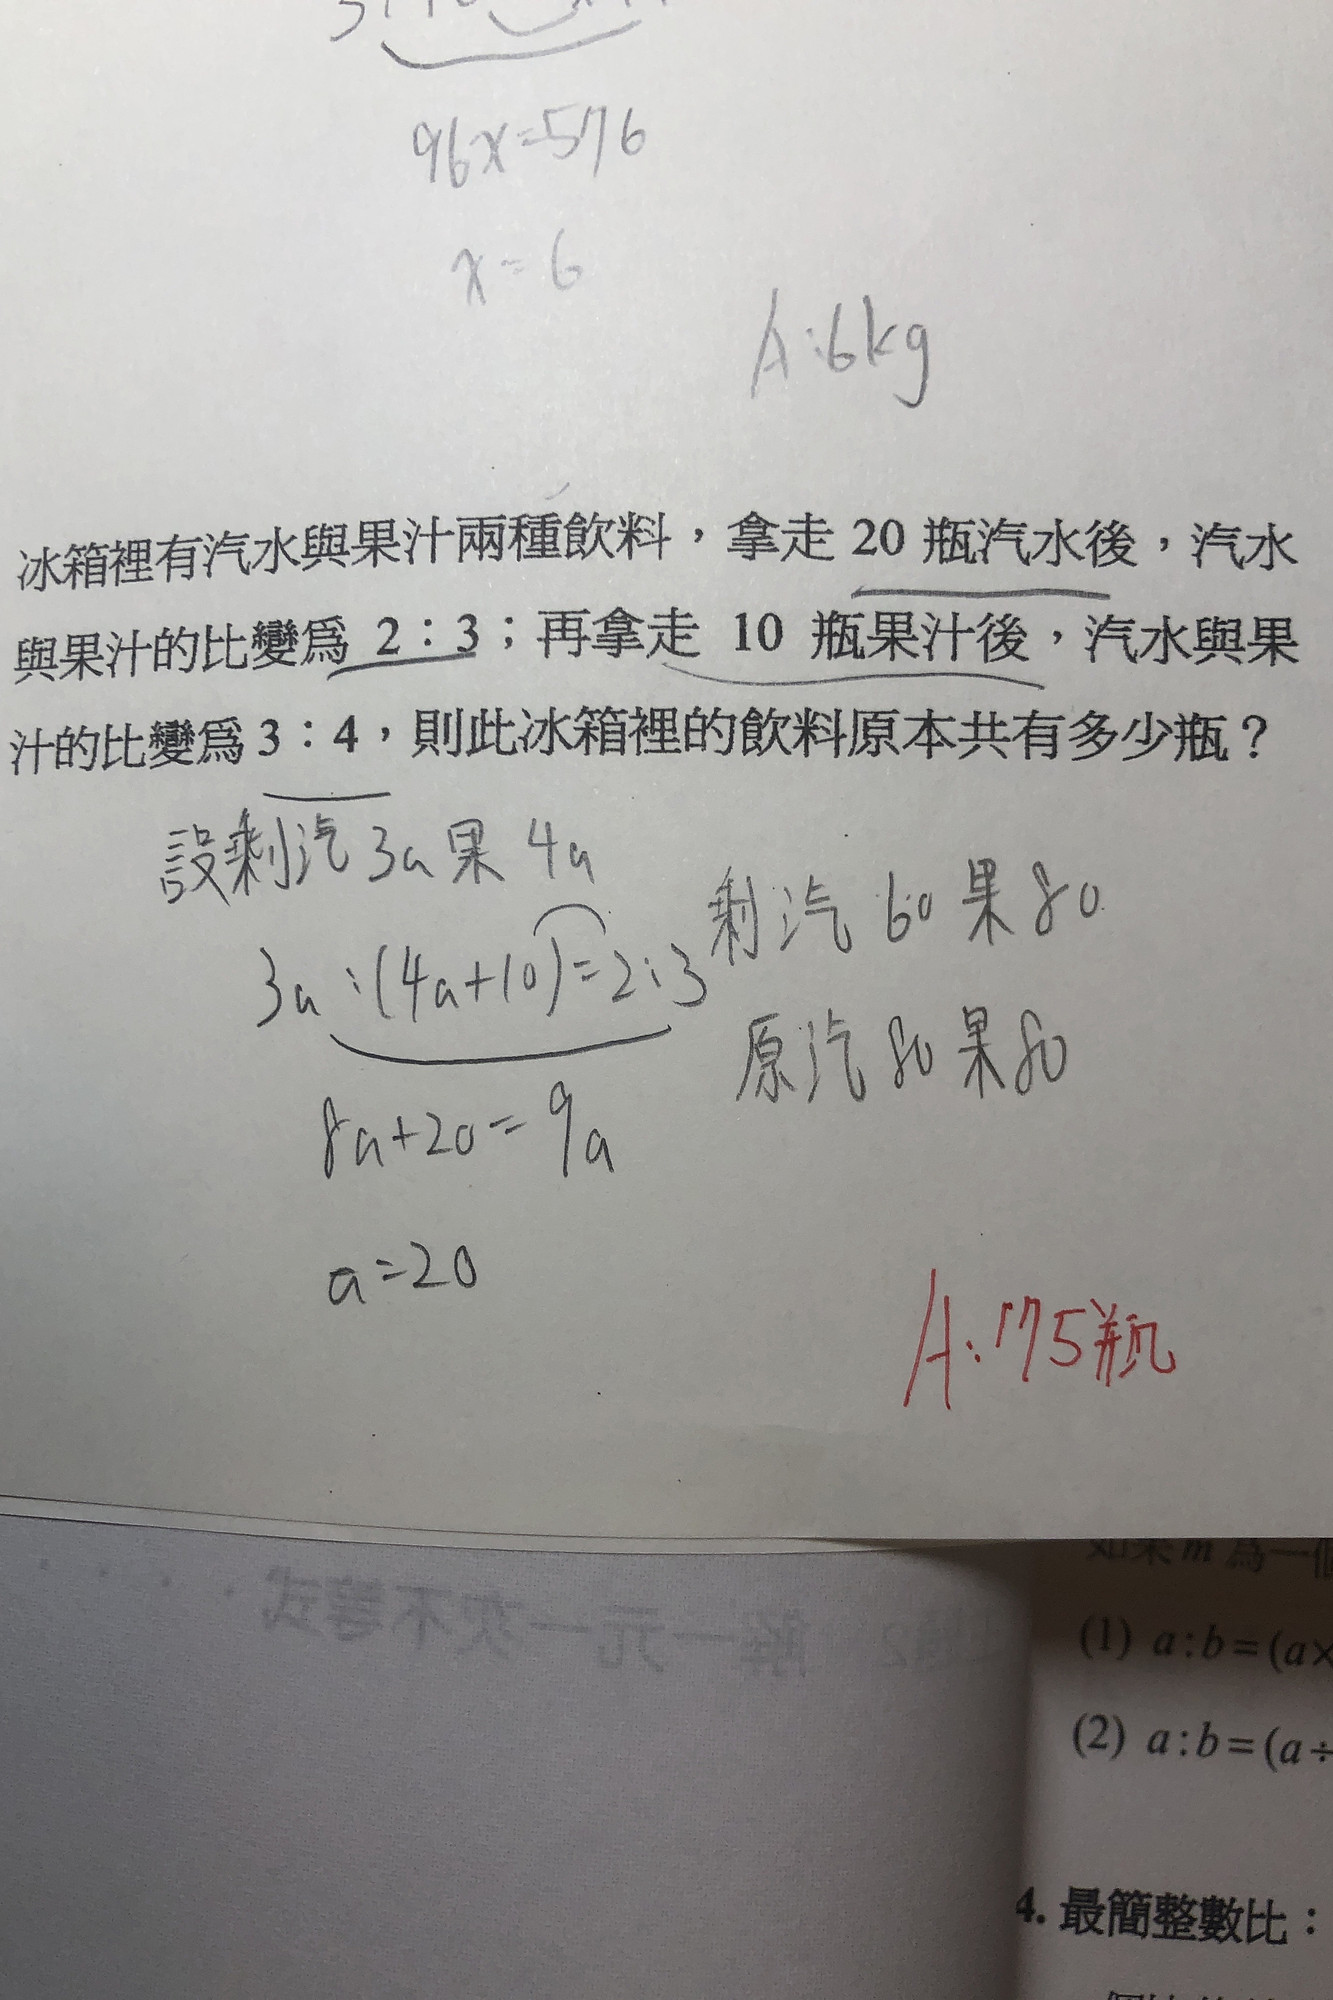 96x=576
x=6
A:6kg
冰箱裡有汽水與果汁兩種飲料，拿走 20 瓶汽水後，汽水
與果汁的比變為 2：3；再拿走 10 瓶果汁後，汽水與果
汁的比變為 3：4，則此冰箱裡的飲料原本共有多少瓶？
設剩汽 3a 果 4a
3a:(4a+10)=2:3
8a+20=9a
a=20
剩汽 60 果 80
原汽 80 果 80
A:175瓶
解一元一次不等式
如果 m 為一個
(1) a:b=(a×
(2) a:b=(a÷
4. 最簡整數比：